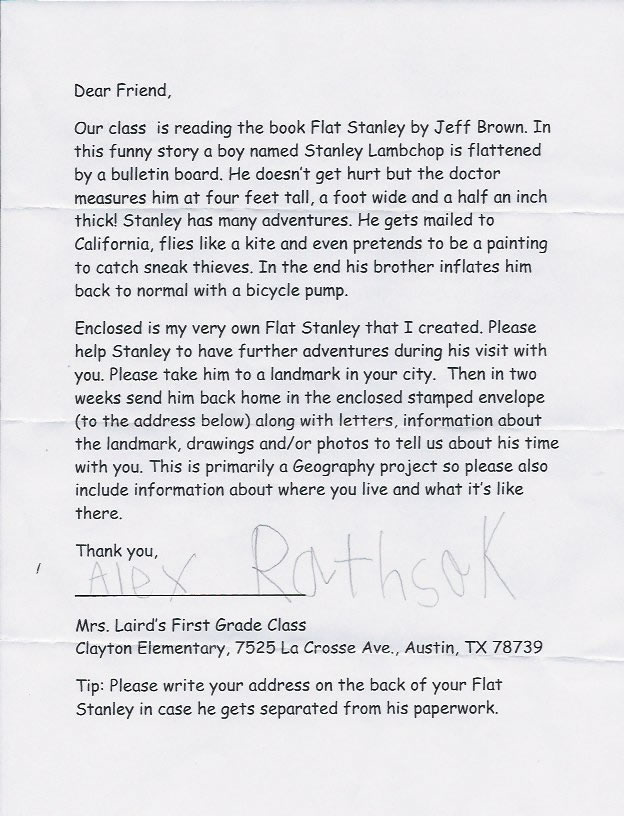 Dear Friend,
Our class is reading the book Flat Stanley by Jeff Brown. In
this funny story a boy named Stanley Lambchop is flattened
by a bulletin board. He doesn't get hurt but the doctor
measures him at four feet tall, a foot wide and a half an inch
thick! Stanley has many adventures. He gets mailed to
California, flies like a kite and even pretends to be a painting
to catch sneak thieves. In the end his brother inflates him
back to normal with a bicycle pump.
Enclosed is my very own Flat Stanley that I created. Please
help Stanley to have further adventures during his visit with
you. Please take him to a landmark in your city. Then in two
weeks send him back home in the enclosed stamped envelope
(to the address below) along with letters, information about
the landmark, drawings and/or photos to tell us about his time
with you. This is primarily a Geography project so please also
include information about where you live and what it's like
there.
Thank you,
Alex Rathsak
Mrs. Laird's First Grade Class
Clayton Elementary, 7525 La Crosse Ave., Austin, TX 78739
Tip: Please write your address on the back of your Flat
Stanley in case he gets separated from his paperwork.